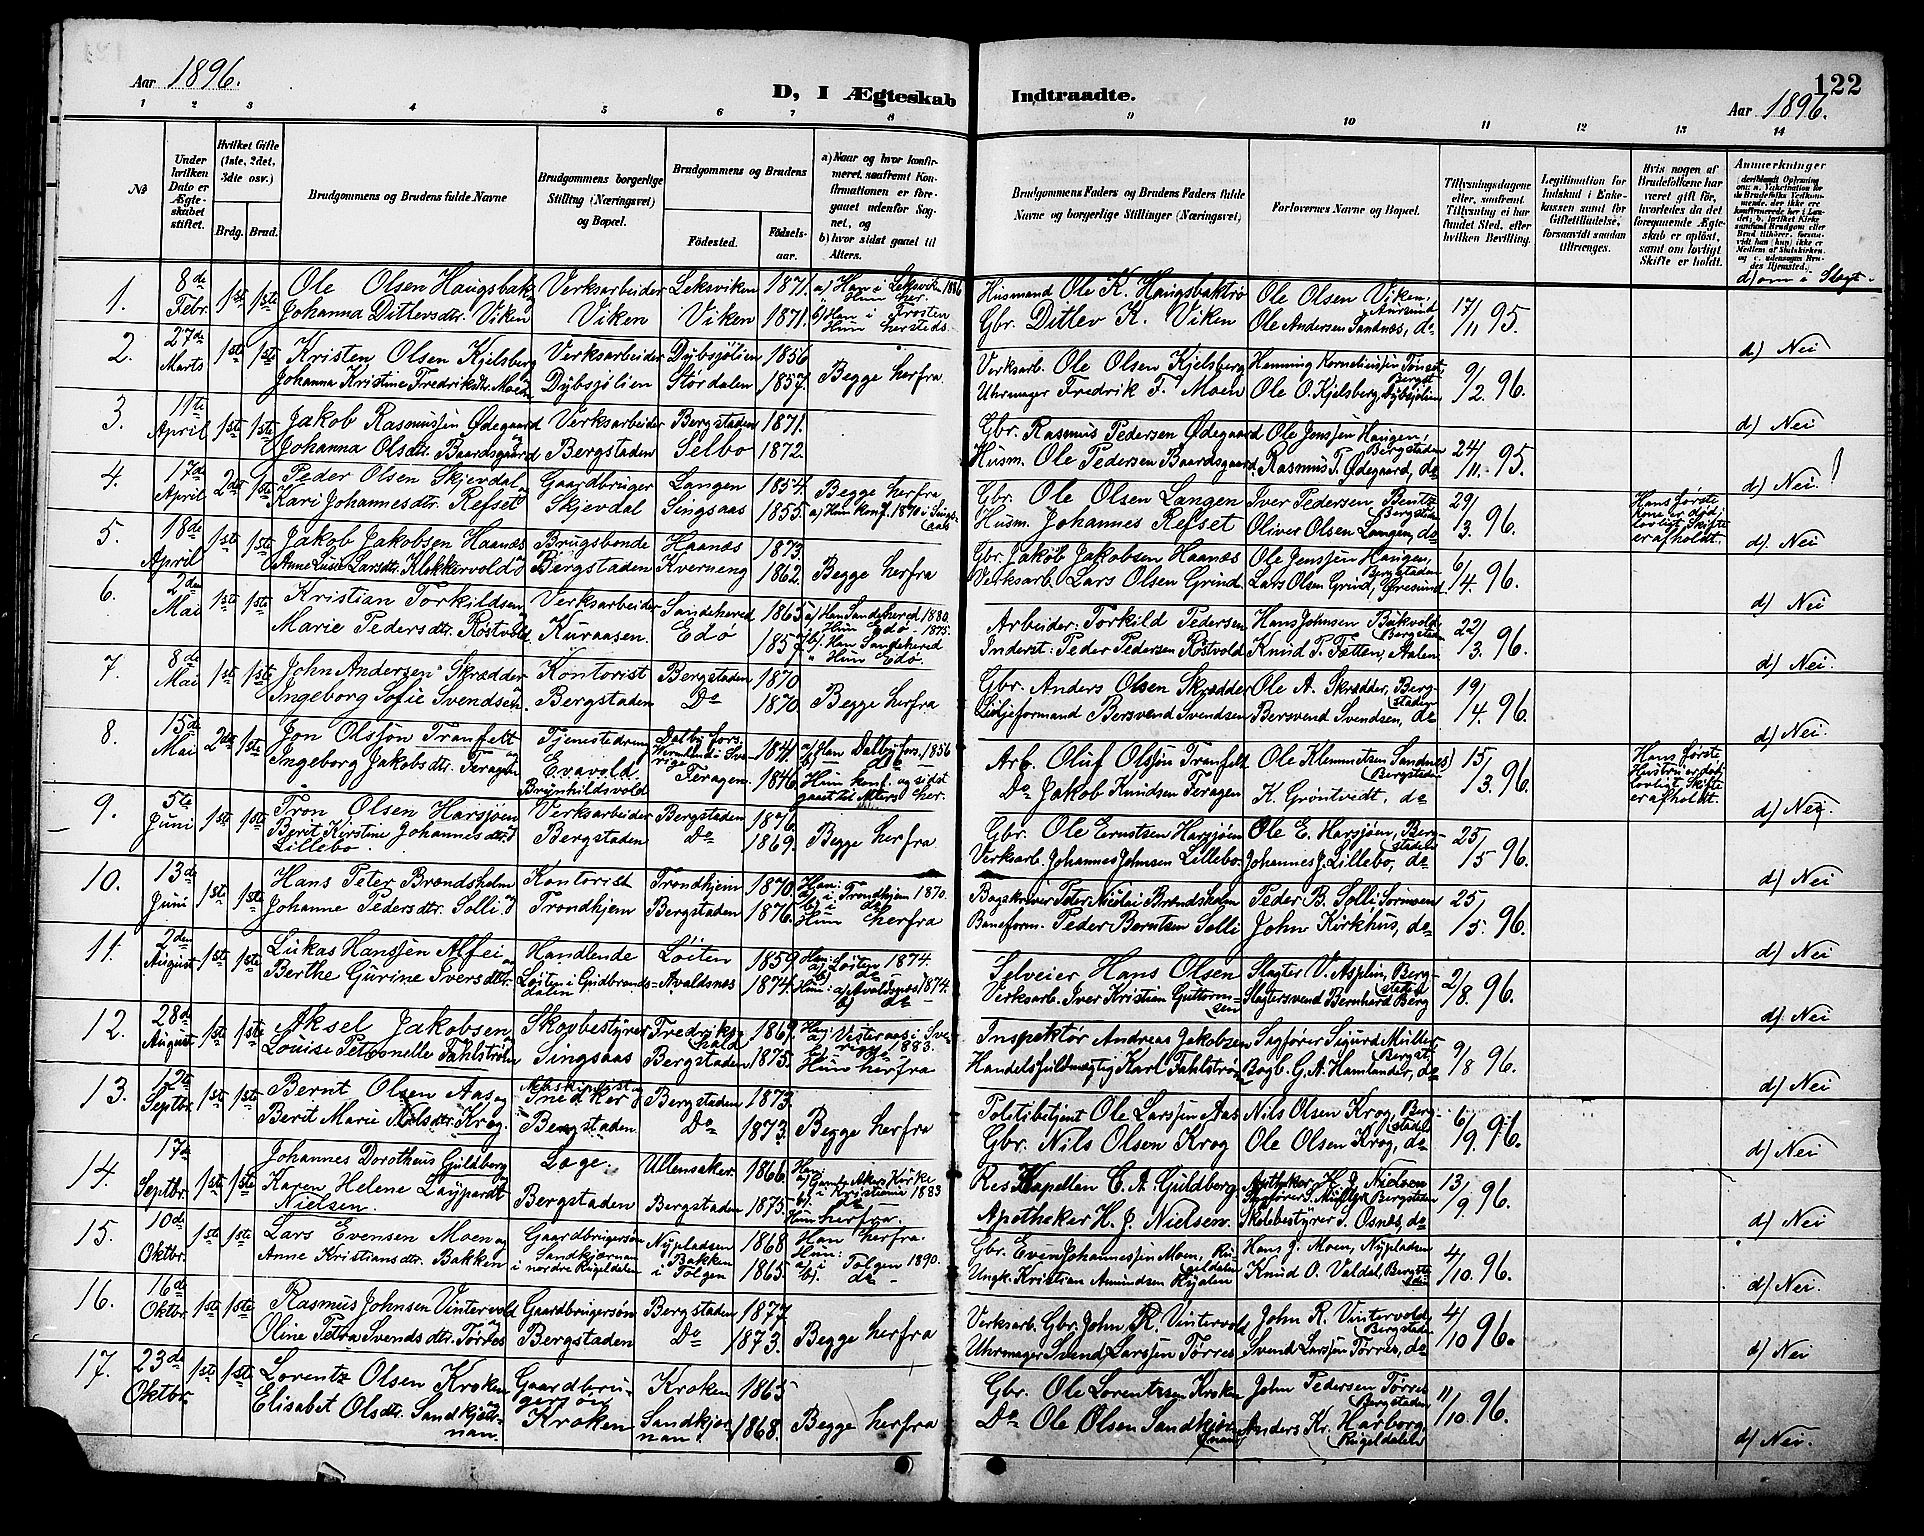 122
Aar 1896.
D, I Ægteskab Indtraadte.
Aar 1896.
1 2 3 4 5 6 7 8 9 10 11 12 13 14
No
Under hvilken Dato er Ægteskabet stiftet.
Hvilket Gifte (1ste, 2det, 3die osv.)
Brdg. Brud.
Brudgommens og Brudens fulde Navne
Brudgommens borgerlige Stilling (Næringsvei) og Bopæl.
Brudgommens og Brudens
Fødested. Fødselsaar.
a) Naar og hvor konfirmeret, saafremt Konfirmationen er foregaaet udenfor Sognet, og
b) hvor sidst gaaet til Alters.
Brudgommens Faders og Brudens Faders fulde Navne og borgerlige Stillinger (Næringsvei)
Forlovernes Navne og Bopæl.
Tillysningsdagene eller, saafremt Tillysning ei har fundet Sted, efter hvilken Bevilling.
Legitimation for Indskud i Enkekassen samt for Giftetilladelse, forsaavidt saadan tiltrænges.
Hvis nogen af Brudefolkene har været gift før, hvorledes da det foregaaende Ægteskab er opløst, samt om lovligt Skifte er holdt.
Anmærkninger
d) om i Slegt.
1. 8de Febr. 1ste 1ste Ole Olsen Haugsbak og Verksarbeider Leksviken 1871. a) Han i Leksviken 1886 Hun her. Husmand Ole K. Haugsbaktrø Ole Olsen Viken, Aursund 17/11 95.
Johanna Ditlevsdtr. Viken Viken Viken 1871. b) Han i Frosten Hun hersteds. Gbr. Ditlev K. Viken Ole Andersen Sandnæs, do d) Nei
2. 27de Marts 1ste 1ste Kristen Olsen Kjelsberg Verksarbeider Dybsjølien 1856 Verksarb. Ole Olsen Kjelsberg Henning Korneliussen Tønset Bergst. 9/2 96.
Johanna Kristine Fredriksdtr. Moen Dybsjølien Stordalen 1857. Begge herfra Uhrmager Fredrik F. Moen Ole O. Kjelsberg, Dybsjølien d) Nei
3. 11te April 1ste 1ste Jakob Rasmussen Ødegaard Verksarbeider Bergstaden 1871. Gbr. Rasmus Pedersen Ødegaard Ole Jonssen Haugen, Bergstaden 24/11 95.
Johanna Olsdtr. Baardsgaard Bergstaden Selbo 1872. Husm. Ole Pedersen Baardsgaard Rasmus P. Ødegaard, do d) Nei !
4. 17de April 2det 1ste Peder Olsen Skjevdal og Gaardbruger Langen 1854. Begge herfra Gbr. Ole Olsen Langen Iver Pedersen Bentz Bergstaden 29/3. 96. Hans første Kone er død, lovligt Skifte er afholdt.
Kari Johannesdtr. Refset Skjevdal Singsaas 1855. a) Hun konf. 1870 i Singsaas Husm. Johannes Refset Oliver Olsen Langen, do d) Nei
5. 18de April 1ste 1ste Jakob Jakobsen Haanæs Brugsbonde Haanæs 1873. Gbr. Jakob Jakobsen Haanæs Ole Jenssen Haugen, Bergstaden 6/4. 96.
Anne Lise Larsdtr. Klokkervold Bergstaden Kverneng 1862. Begge herfra Verksarb. Lars Olsen Grind Lars Olsen Grind, Øresund d) Nei
6. 2den Mai 1ste 1ste Kristian Torkildsen Verksarbeider Sandehered 1865 a) Han Sandehered 1880. Hun Edø 1875. Arbeider Torkild Pedersen Hans Johnsen Bakvold Bergstaden 22/3. 96.
Marie Pedersdtr. Røstvold Kuraasen. Edø 1857. b) Han Sandehered Hun Edø. Inderst: Peder Pedersen Røstvold Knud P. Fetten, Aalen d) Nei.
7. 8de Mai 1ste 1ste John Andersen Skrædder og Kontorist Bergstaden 1870 Gbr. Anders Olsen Skrædder Ole A. Skrædder, Bergstaden 19/4. 96.
Ingeborg Sofie Svendsen. Bergstaden Do 1870 Begge herfra Linjeformand Bersvend Svendsen Bersvend Svendsen, do d) Nei.
8. 15de Mai 2det 1ste Jon Olssøn Tranfelt og Tjenestedreng Dalby fors. Wermland i Sverige 1841. a) Han Dalby fors. 1856 b) do Arb. Oluf Olssøn Tranfelt Ole Klemmetsen Sandnes Bergstaden 15/3. 96. Hans første Hustru er død, lovligt Skifte er afholdt.
Ingeborg Jakobsdtr. Feragen Evavold Brynhildsvold Feragen 1846. Hun konf. og sidst gaaet til Alters her. Do Jakob Knudsen Feragen K. Grøntvedt, do d) Nei.
9. 5te Juni 1ste 1ste Tron Olsen Harsjøen Verksarbeider Bergstaden 1876. Gbr. Ole Ernstsen Harsjøen Ole E. Harsjøen, Bergstaden 25/5 96.
Berit Kirstine Johannesdtr. Lillebo. Bergstaden Do 1869. Begge herfra Verksarb. Johannes Johnsen Lillebo Johannes J. Lillebo, do d) Nei
10. 13de Juni 1ste 1ste Hans Peter Brøndsholm Kontorist Trondhjem 1870. Han: a) i Trondhjem 1870. b) do Bogskriver Peter Nicolai Brøndsholm Peder B. Solli Sørmoen 25/5. 96.
Johanne Pedersdtr. Solli Trondhjem Bergstaden 1876. Hun herfra Baneform. Peder Berntsen Solli John Kirkhus, do d) Nei
11. 2den August 1ste 1ste Lukas Hanssen Alfei og Handlende Løiten 1859. Han: a) Løiten 1874. b) do Selveier Hans Olsen Slagter V. Asplin, Bergstaden 2/8. 96.
Berthe Gurine Iversdtr. Løiten i Gudbrandsdalen Avaldsnæs 1874. Hun: a) Avaldsnæs 1874. b) do Verksarb. Iver Kristian Guttormsen Slagtersvend Bernhard Berg d) Nei
12. 28de August 1ste 1ste Aksel Jakobsen Skovbestyrer Fredrikshald 1869. Han: a) Vesteraas i Sverige 1883. Inspektør Andreas Jakobsen Sagfører Sigurd Müller Bergst. 9/8 96.
Louise Petronelle Fahlstrøm Singsaas Bergstaden 1875. Hun herfra Handelsfuldmægtig Karl Fahlstrøm Bogb. G. A. Hamlander, do d) Nei
13. 12te Septbr. 1ste 1ste Bernt Olsen Aas og Snedker Bergstaden 1873. Politibetjent Ole Larssen Aas Nils Olsen Krog, Bergstaden 6/9. 96.
Berit Marie Nilsdtr. Krog. Bergstaden Do 1873. Begge herfra Gbr. Nils Olsen Krog Ole Olsen Krog, do d) Nei
14. 17de Septbr. 1ste 1ste Johannes Dorotheus Guldberg Læge. Ullensaker 1866. Han: a) Gamle Akers Kirke i Kristiania 1883 b) do Res Kapellan C. A. Guldberg Apotheker H. J. Nielsen Sagfører S. Müller Bergstaden 13/9. 96.
Karen Helene Laypardt Nielsen. Bergstaden Bergstaden 1875. Hun herfra. Apotheker H. J. Nielsen. Skolebestyrer S. Osnes, do d) Nei
15. 10de Oktbr. 1ste 1ste Lars Evensen Moen og Gaardbrugersøn Nypladsen 1868 Han herfra. Gbr. Even Johannessen Moen, Rugeldalen Hans J. Moen, Nypladsen 4/10. 96.
Anne Kristiansdtr. Bakken Sandkjernan i nordre Rugeldalen Bakken i Tolgen 1865. Hun: a) i Tolgen 1890. b) do Ungk. Kristian Amundsen Ryalen Knud O. Valdal, Bergstaden d) Nei
16. 16de Oktbr. 1ste 1ste Rasmus Johnsen Vintervold Gaardbrugersøn Bergstaden 1877 Verksarb. Gbr. John R. Vintervold John R. Vintervold Bergstaden 4/10 96.
Oline Petra Svendsdtr. Tørres Bergstaden Do 1873. Begge herfra Uhrmager Svend Larssen Tørres Svend Larssen Tørres, do d) Nei
17. 23de Oktbr. 1ste 1ste Lorentz Olsen Kroken Gaardbrugersøn Kroken 1865 Gbr. Ole Lorentzsen Kroken John Pedersen Tørres Bergstaden 11/10. 96.
Elisabet Olsdtr. Sandkjernan. Kroken Sandkjernan. 1868. Begge herfra Do Ole Olsen Sandkjernan Anders Kr. Harborg, Rugeldalen d) Nei.